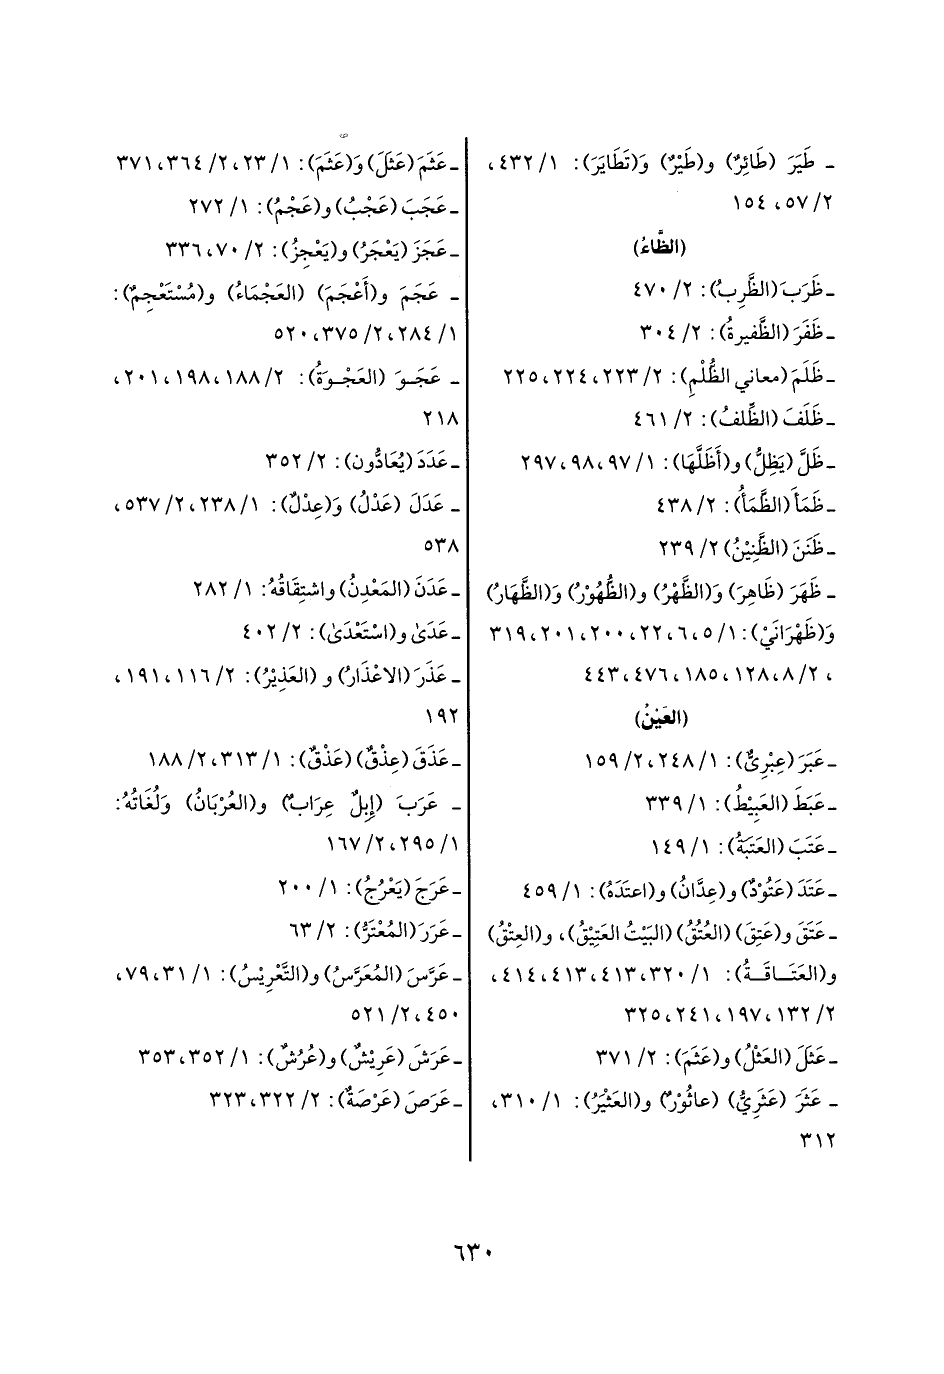 ـ طَيَرَ (طَائِرٌ) و(طَيْرٌ) وَ(تَطَايَرَ): ١/ ٤٣٢،
٢/ ٥٧، ١٥٤
(الظَّاءُ)
ـ ظَرَبَ (الظَّرِبُ): ٢/ ٤٧٠
ـ ظَفَرَ (الظَّفيرةُ): ٢/ ٣٠٤
ـ ظَلَمَ (معاني الظُّلْمِ): ٢/ ٢٢٣، ٢٢٤، ٢٢٥
ـ ظَلَفَ (الظِّلفُ): ٢/ ٤٦١
ـ ظَلَّ (يَظِلُّ) و(أَظَلَّهَا): ١/ ٩٧، ٩٨، ٢٩٧
ـ ظَمَأَ (الظَّمَأُ): ٢/ ٤٣٨
ـ ظَنَنَ (الظَّنِيْنُ) ٢/ ٢٣٩
ـ ظَهَرَ (ظَاهِرَ) وَ(الظَّهْرُ) و(الظُّهُوْرُ) وَ(الظَّهَارُ)
وَ(ظَهْرَانَيْ): ١/ ٥، ٦، ٢٢، ٢٠٠، ٢٠١، ٣١٩
، ٢/ ٨، ١٢٨، ١٨٥، ٤٧٦، ٤٤٣
(العَيْنُ)
ـ عَبَرَ (عِبْرِيٌّ): ١/ ٢٤٨، ٢/ ١٥٩
ـ عَبَطَ (العَبِيْطُ): ١/ ٣٣٩
ـ عَتَبَ (العَتَبَةُ): ١/ ١٤٩
ـ عَتَدَ (عَتُوْدٌ) و(عِدَّانُ) و(اعتَدَهُ): ١/ ٤٥٩
ـ عَتَقَ و(عَتِقَ) (العُتُقُ) (البَيْتُ العَتِيْقُ)، و(العِتْقُ)
و(العَتَــاقَــةُ): ١/ ٣٢٠، ٤١٣، ٤١٣، ٤١٤،
٢/ ١٣٢، ١٩٧، ٢٤١، ٣٢٥
ـ عَثَلَ (العَثْلُ) و(عَثَمَ): ٢/ ٣٧١
ـ عَثَرَ (عَثَرِيُّ) (عاثُوْرٌ) و(العَثْيَرُ): ١/ ٣١٠،
٣١٢
ـ عَثَمَ (عَثَلَ) وَ(عَثَمَ): ١/ ٢٣، ٢/ ٣٦٤، ٣٧١
ـ عَجَبَ (عَجْبُ) و(عَجْمُ): ١/ ٢٧٢
ـ عَجَزَ (يَعْجَزُ) و(يَعْجِزُ): ٢/ ٧٠، ٣٣٦
ـ عَجَمَ و(أَعْجَمَ) (العَجْمَاءُ) و(مُسْتَعْجِمٌ):
١/ ٢٨٤، ٢/ ٣٧٥، ٥٢٠
ـ عَجَـوَ (العَجْـوَةُ): ٢/ ١٨٨، ١٩٨، ٢٠١،
٢١٨
ـ عَدَدَ (يُعَادُّون): ٢/ ٣٥٢
ـ عَدَلَ (عَدْلُ) وَ(عِدْلٌ): ١/ ٢٣٨، ٢/ ٥٣٧،
٥٣٨
ـ عَدَنَ (المَعْدِنُ) واشتِقَاقُهُ: ١/ ٢٨٢
ـ عَدَىٰ و(اسْتَعْدَىٰ): ٢/ ٤٠٢
ـ عَذَرَ (الاعْذَارُ) و (العَذِيْرُ): ٢/ ١١٦، ١٩١،
١٩٢
ـ عَذَقَ (عِذْقٌ) (عَذْقٌ): ١/ ٣١٣، ٢/ ١٨٨
ـ عَرَبَ (إِبلٌ عِرَابٌ) و(العُرْبَانُ) وَلُغَاتُهُ:
١/ ٢٩٥، ٢/ ١٦٧
ـ عَرَجَ (يَعْرُجُ): ١/ ٢٠٠
ـ عَرَرَ (المُعْتَرُّ): ٢/ ٦٣
ـ عَرَّسَ (المُعَرَّسُ) و(التَّعْرِيْسُ): ١/ ٣١، ٧٩،
٤٥٠، ٢/ ٥٢١
ـ عَرَشَ (عَرِيْشٌ) و(عُرُشٌ): ١/ ٣٥٢، ٣٥٣
ـ عَرَصَ (عَرْصَةٌ): ٢/ ٣٢٢، ٣٢٣
٦٣٠